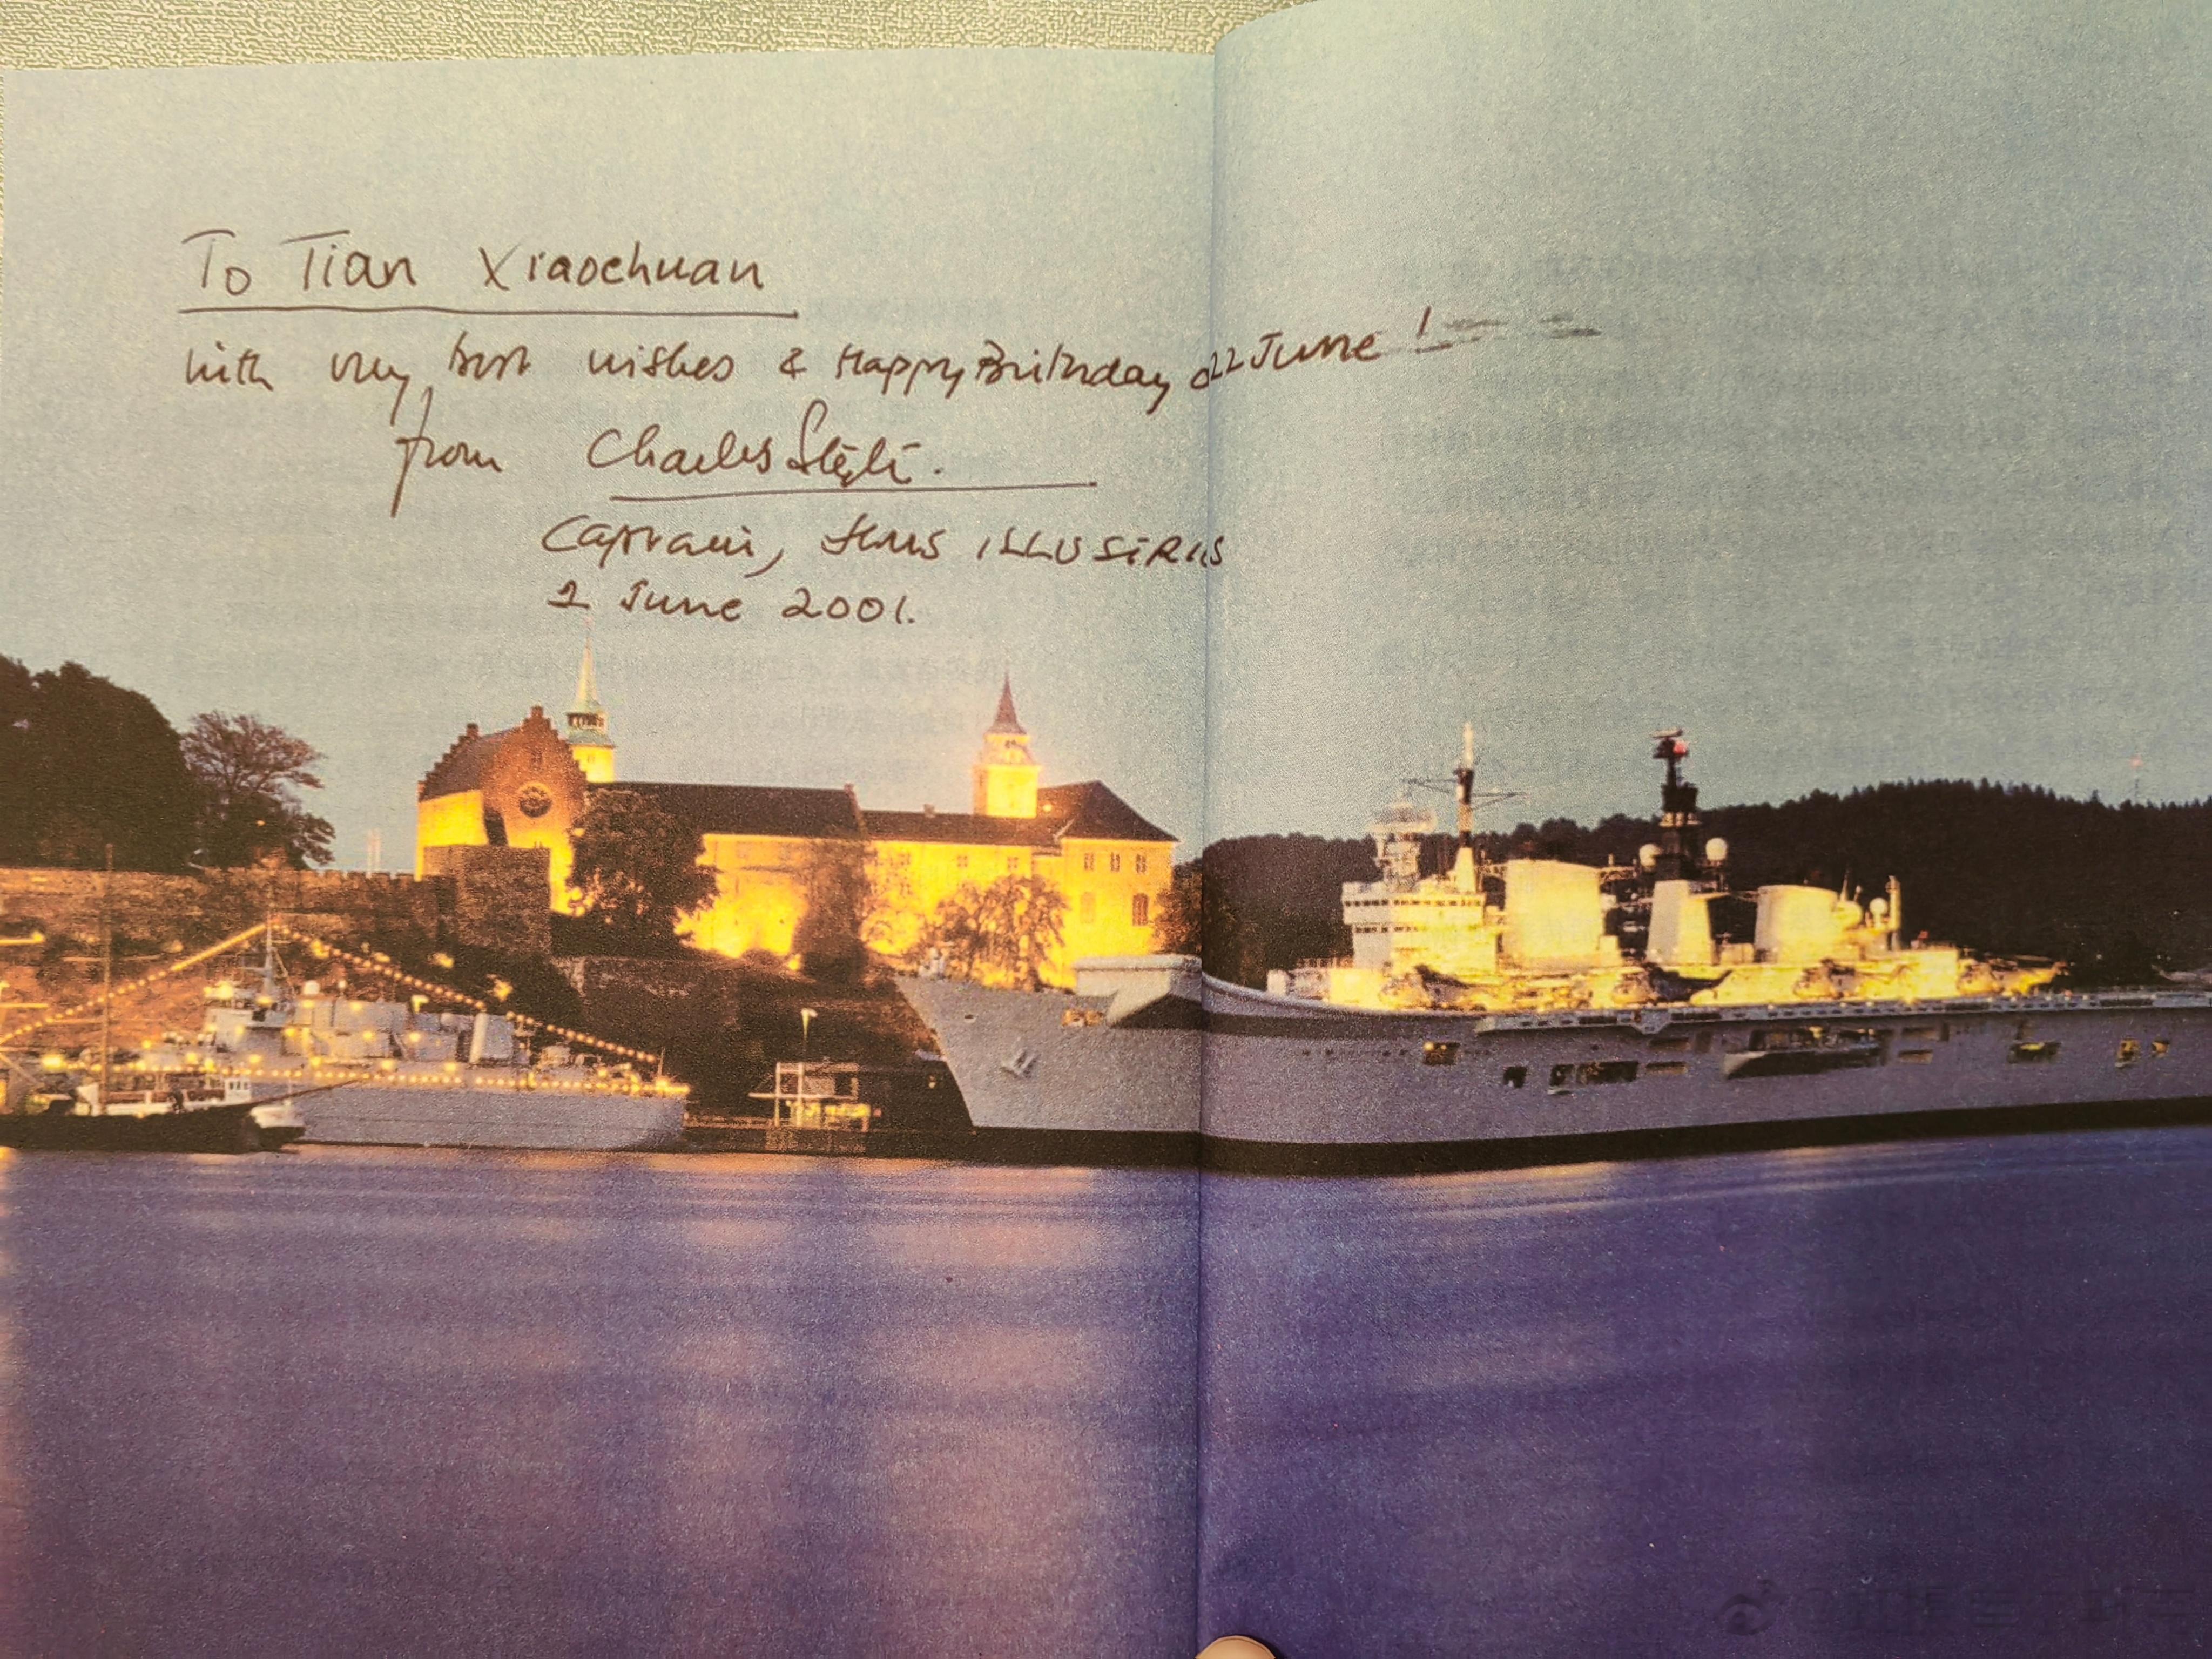 To Tian Xiaochuan
with very best wishes & Happy Birthday 22 June !
from Charles Style.
Captain, HMS ILLUSTRIOUS
2 June 2001.